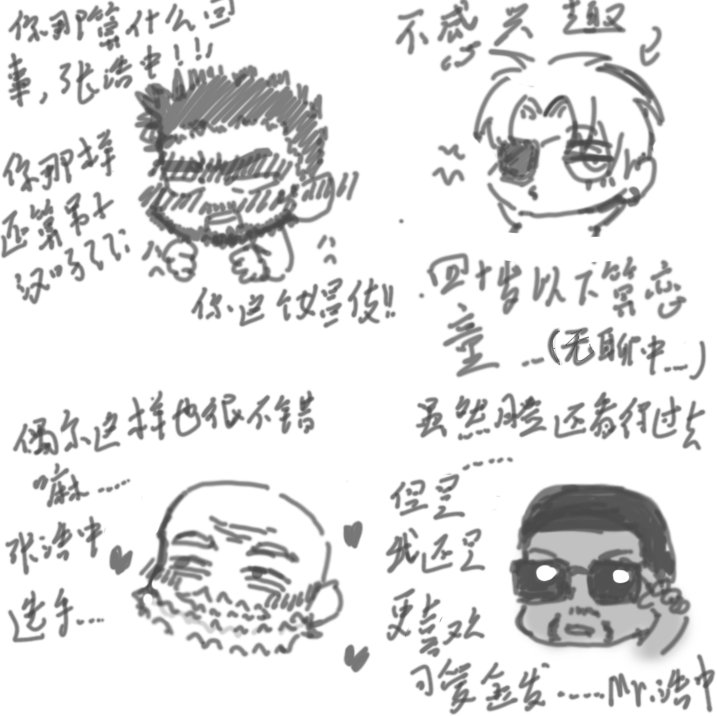 你那算什么回
事，张浩中!!!
你那样
还算男子
汉吗???
你这个娘伎!!
不感兴趣
四十岁以下算恋
童……(无聊中……)
偶尔这样也很不错
嘛……
张浩中
选手……
虽然脸还看得过去
……
但是
我还是
更喜欢
可爱金发……Mr.浩中